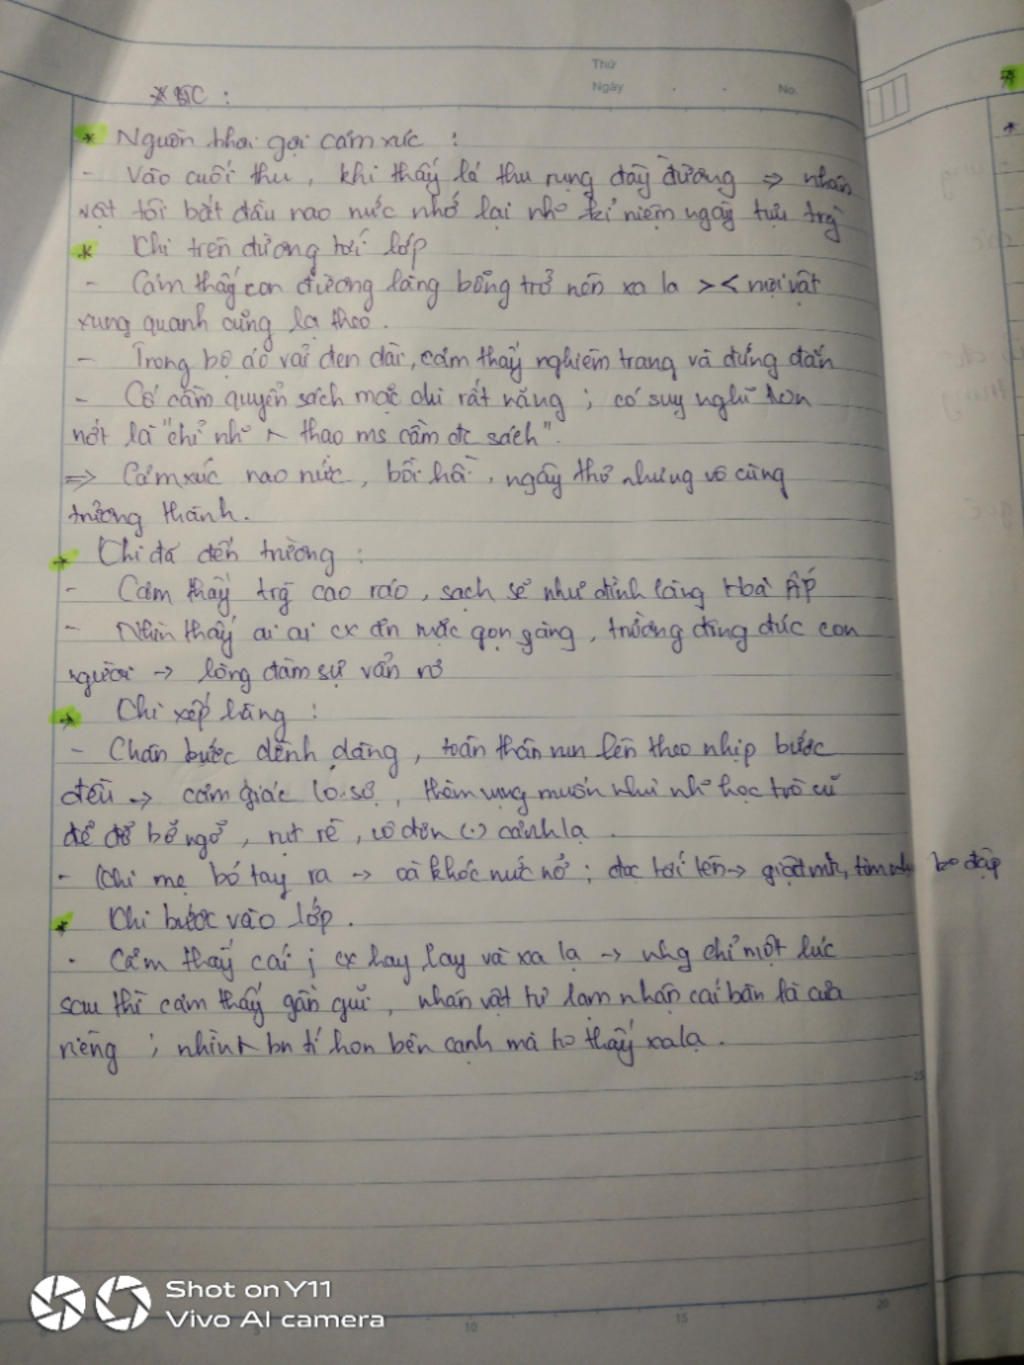 Thứ
Ngày . . No.
* Nguồn khơi gợi cảm xúc :
- Vào cuối thu, khi thấy lá thu rụng đầy đường => nhân
vật tôi bắt đầu nao nức nhớ lại kỉ niệm ngày tựu trg
* Khi trên đường tới lớp
- Cảm thấy con đường làng bỗng trở nên xa lạ >< mọi vật
xung quanh cũng lạ theo.
- Trong bộ áo vải đen dài, cảm thấy nghiêm trang và đứng đắn
- Cố cầm quyển sách mặc dù rất nặng ; có suy nghĩ non
nớt là "chỉ thạo ms cầm đc sách".
=> Cảm xúc nao nức, bồi hồi, ngây thơ nhưng vô cùng
trưởng thành.
* Khi đã đến trường :
- Cảm thấy trg cao ráo, sạch sẽ như đình làng Hoà Ấp
- Nhìn thấy ai ai cx ăn mặc gọn gàng, trường đông đúc con
người -> lòng đâm sự vẩn vơ
* Khi xếp hàng :
- Chân bước dềnh dàng, toàn thân run lên theo nhịp bước
đều -> cảm giác lo sợ, thèm vụng muốn như học trò cũ
để đỡ bỡ ngỡ, rụt rè, cô đơn (.) cảnh lạ .
- Khi mẹ bỏ tay ra -> oà khóc nức nở ; đọc tới tên -> giật mình, tim đập
* Khi bước vào lớp .
- Cảm thấy cái j cx hay hay và xa lạ -> nhg chỉ một lúc
sau thì cảm thấy gần gũi, nhân vật tự lạm nhận cái bàn là của
riêng ; nhìn bn tí hon bên cạnh mà ko thấy xa lạ .
25
5 10 15 20
Shot on Y11
Vivo AI camera